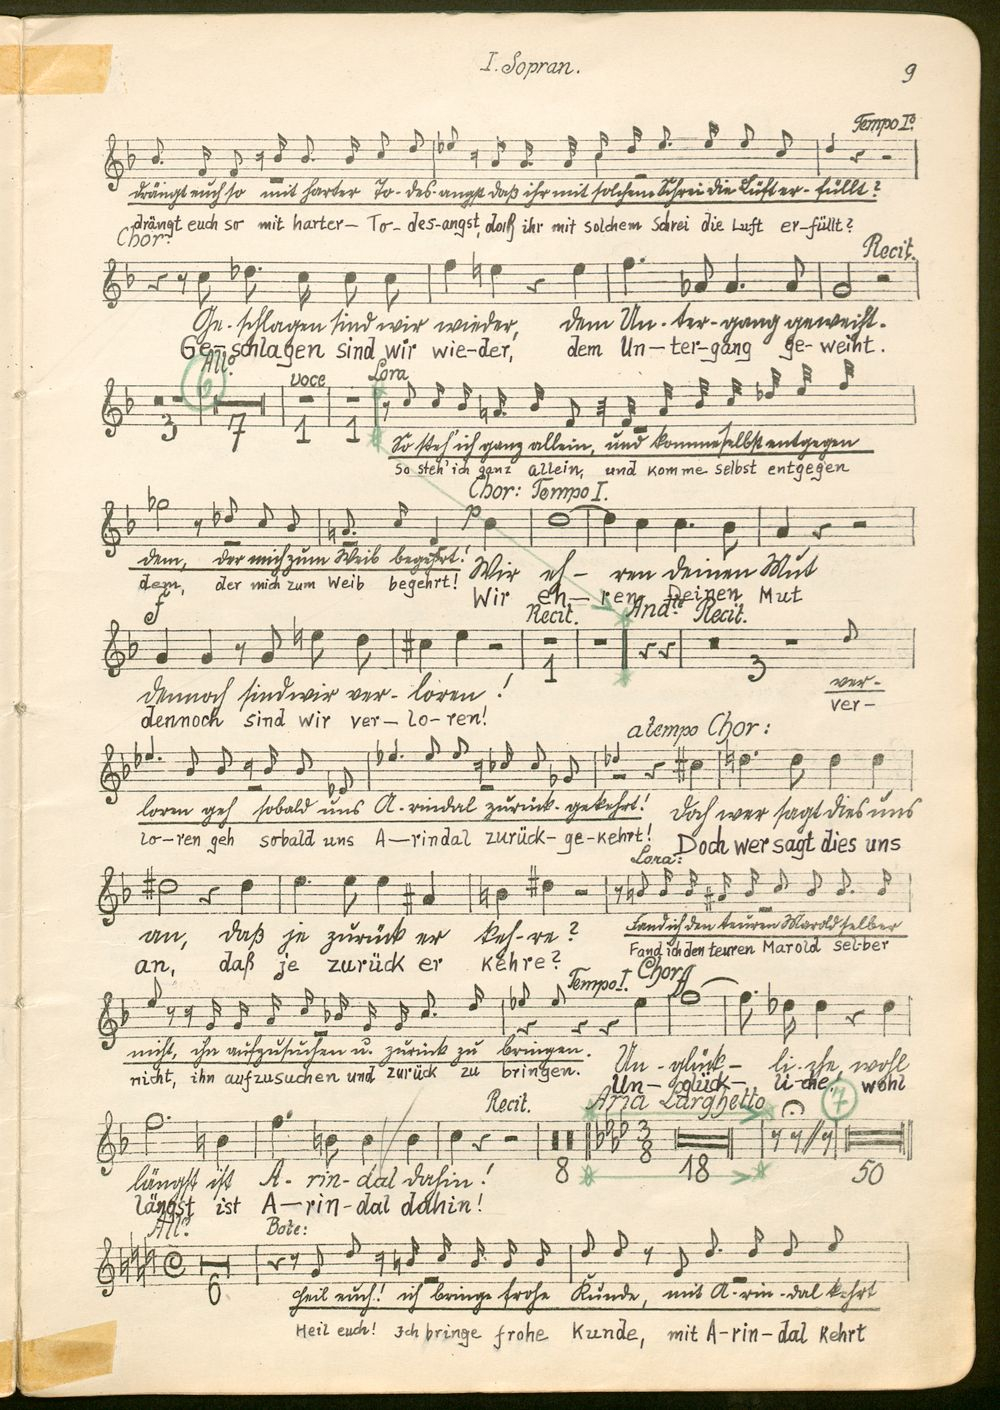 I. Sopran.
9
Tempo Iº
drängt euch so mit harter To-des-angst daß ihr mit solchem Schrei die Luft er-füllt?
drängt euch so mit harter- To-des-angst, daß ihr mit solchem Schrei die Luft er-füllt?
Chor:
Recit.
Ge-schlagen sind wir wieder, dem Un-ter-gang geweiht.
Ge-schlagen sind wir wie-der, dem Un-ter-gang ge-weiht.
6 Allº voce Lora
3 7 1 1
So steh' ich ganz allein, und komme selbst entgegen
So steh' ich ganz allein, und komme selbst entgegen
Chor: Tempo I.
p
dem, der mich zum Weib begehrt! Wir eh-ren deinen Mut
dem, der mich zum Weib begehrt! Wir eh-ren Deinen Mut
f Recit. Andte Recit.
1 3
dennoch sind wir ver-loren! ver-
dennoch sind wir ver-lo-ren! ver-
atempo Chor:
loren geh sobald uns A-rindal zurück-gekehrt! Doch wer sagt dies uns
lo-ren geh sobald uns A-rindal zurück-ge-kehrt! Doch wer sagt dies uns
Lora:
an, daß je zurück er keh-re? Fand ich den teuren Marold selber
an, daß je zurück er kehre? Fand ich den teuren Marold sel-ber
Tempo I. Chor ff
nicht, ihn aufzusuchen u. zurück zu bringen. Un-glück-li-che, wohl
nicht, ihn aufzusuchen und zurück zu bringen. Un-glück-li-che, wohl
Recit. Aria Larghetto 7
8 3 8 18 50
längst ist A-rin-dal dahin!
längst ist A-rin-dal dahin!
Allº Bote:
6
Heil euch! ich bringe frohe Kunde, mit A-rin-dal kehrt
Heil euch! Ich bringe frohe Kunde, mit A-rin-dal kehrt